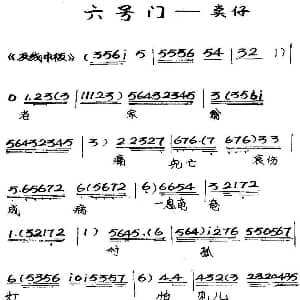 六号门——卖仔
《反线中板》(3561 5 | 5556 54 | 32 1)|
0 1.23(3 | 11123) | 56432345 | 3(3561
老 家
56432345 | 3) 22327 | 676.(7 676)33
痛 死亡 哀伤
5.65672 | 6(5672 | 6)6654 | 32172
成 病 一息奄奄
1.(32172 | 1) | 5645.(6 | 564)i276 | 550567
对 孤
6(5356 | i0i5357 | 6) 44 | 432(3 | 2320435
灯 怕 见儿